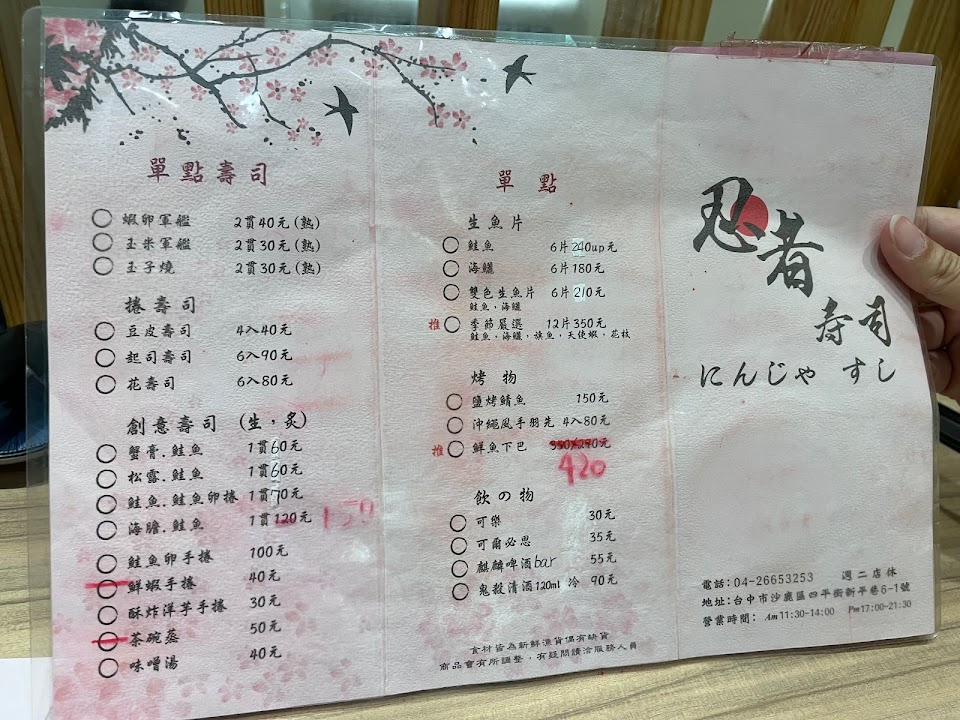 單點壽司
蝦卵軍艦 2貫40元(熟)
玉米軍艦 2貫30元(熟)
玉子燒 2貫30元(熟)
捲壽司
豆皮壽司 4入40元
起司壽司 6入90元
花壽司 6入80元
創意壽司 (生,炙)
蟹膏.鮭魚 1貫60元
松露.鮭魚 1貫60元
鮭魚.鮭魚卵捲 1貫70元
海膽.鮭魚 1貫120元 150
鮭魚卵手捲 100元
鮮蝦手捲 40元
酥炸洋芋手捲 30元
茶碗蒸 50元
味噌湯 40元
單點
生魚片
鮭魚 6片240up元
海鱺 6片180元
雙色生魚片 6片210元
鮭魚,海鱺
推 季節嚴選 12片350元
鮭魚,海鱺,旗魚,天使蝦,花枝
烤物
鹽烤鯖魚 150元
沖繩風手羽先 4入80元
推 鮮魚下巴
420
飲の物
可樂 30元
可爾必思 35元
麒麟啤酒bar 55元
鬼殺清酒120ml 冷 90元
食材皆為新鮮漁貨偶有缺貨
商品會有所調整,有疑問請洽服務人員
忍者
壽司
にんじゃ すし
電話:04-26653253 週二店休
地址:台中市沙鹿區四平街新平巷6-1號
營業時間: Am11:30-14:00 Pm17:00-21:30